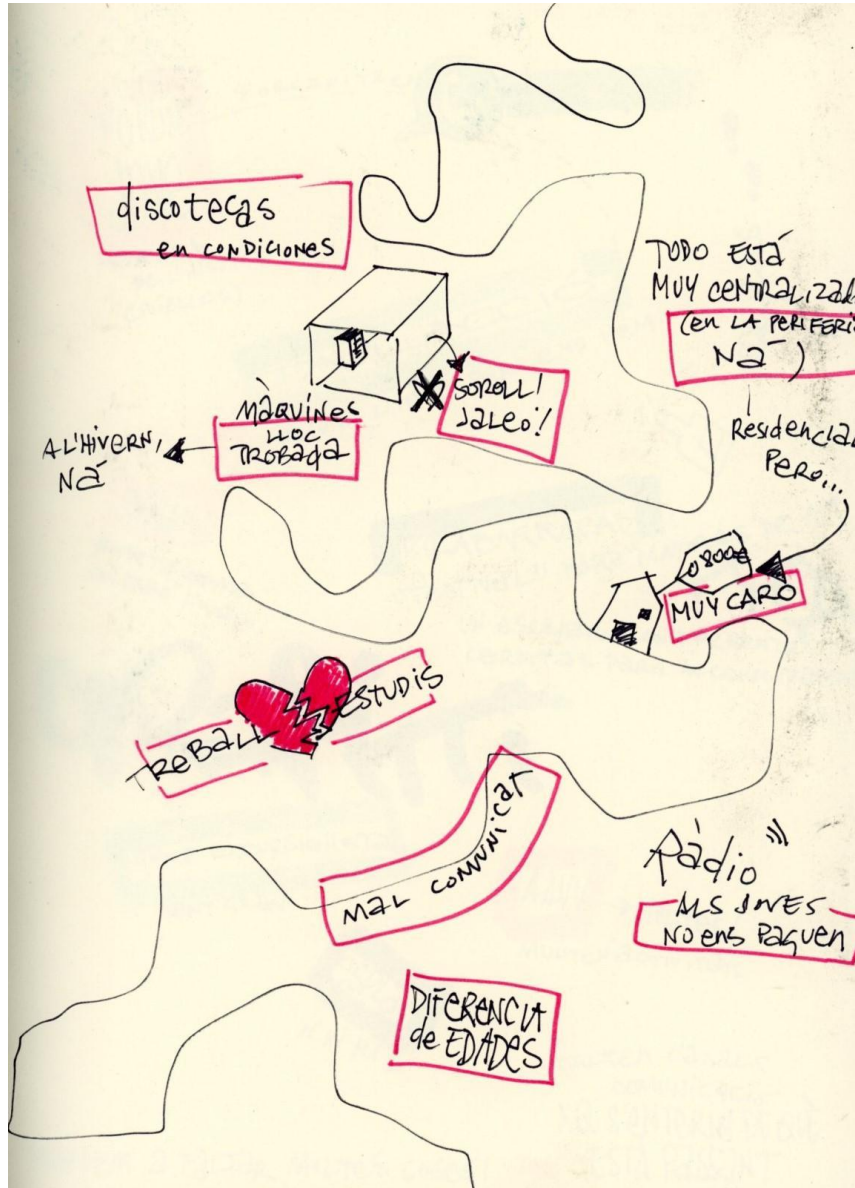 discotecas
en condiciones
TODO ESTÁ
MUY CENTRALIZAD
(en LA PERIFERI
NÁ)
SOROLL!
JALEO!
MÀQUINES
LLOC
TROBADA
A L'HIVERN,
NÁ
Residencial
PERO...
0800€
MUY CARO
TREBALL
ESTUDIS
MAL COMUNICAT
Ràdio
ALS JOVES
NO ens PAGUEN
DIFERENCIA
de EDADES